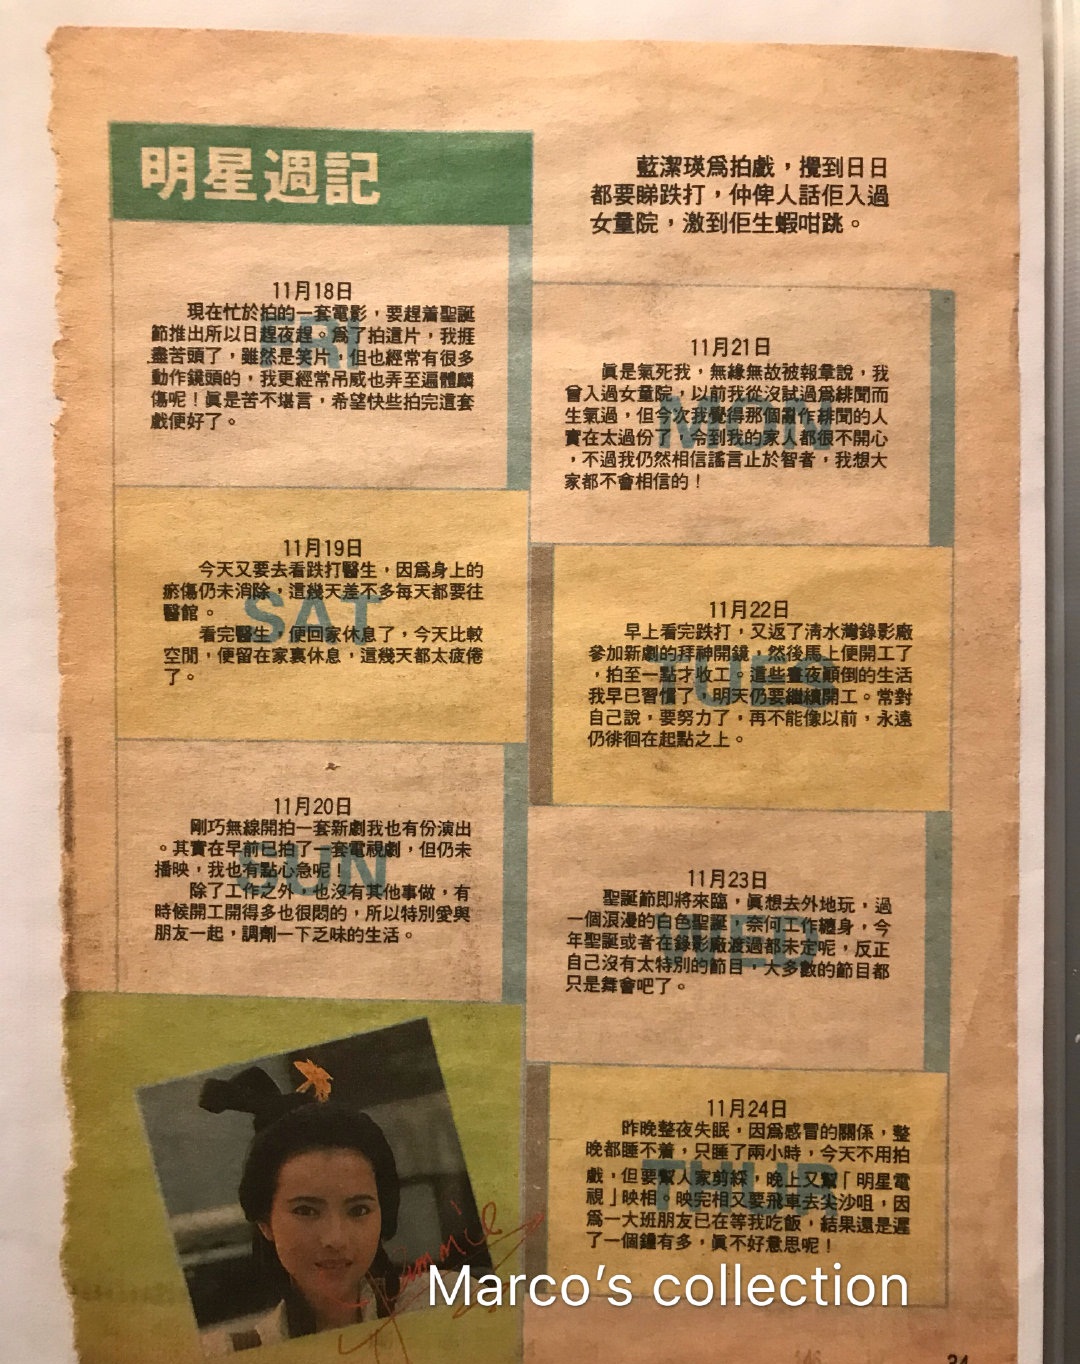 明星週記
藍潔瑛爲拍戲，攪到日日
都要睇跌打，仲俾人話佢入過
女童院，激到佢生蝦咁跳。
FRI
11月18日
現在忙於拍的一套電影，要趕着聖誕
節推出所以日趕夜趕。爲了拍這片，我捱
盡苦頭了，雖然是笑片，但也經常有很多
動作鏡頭的，我更經常吊威也弄至遍體麟
傷呢！眞是苦不堪言，希望快些拍完這套
戲便好了。
SAT
11月19日
今天又要去看跌打醫生，因爲身上的
瘀傷仍未消除，這幾天差不多每天都要往
醫館。
看完醫生，便回家休息了，今天比較
空閒，便留在家裏休息，這幾天都太疲倦
了。
SUN
11月20日
剛巧無線開拍一套新劇我也有份演出
。其實在早前已拍了一套電視劇，但仍未
播映，我也有點心急呢！
除了工作之外，也沒有其他事做，有
時候開工開得多也很悶的，所以特別愛與
朋友一起，調劑一下乏味的生活。
MON
11月21日
眞是氣死我，無緣無故被報章說，我
曾入過女童院，以前我從沒試過爲緋聞而
生氣過，但今次我覺得那個亂作緋聞的人
實在太過份了，令到我的家人都很不開心
，不過我仍然相信謠言止於智者，我想大
家都不會相信的！
TUES
11月22日
早上看完跌打，又返了清水灣錄影廠
參加新劇的拜神開鏡，然後馬上便開工了
，拍至一點才收工。這些晝夜顚倒的生活
我早已習慣了，明天仍要繼續開工。常對
自己說，要努力了，再不能像以前，永遠
仍徘徊在起點之上。
WED
11月23日
聖誕節即將來臨，眞想去外地玩，過
一個浪漫的白色聖誕，奈何工作纏身，今
年聖誕或者在錄影廠渡過都未定呢，反正
自己沒有太特別的節目，大多數的節目都
只是舞會吧了。
THUR
11月24日
昨晚整夜失眠，因爲感冒的關係，整
晚都睡不着，只睡了兩小時，今天不用拍
戲，但要幫人家剪綵，晚上又幫「明星電
視」映相。映完相又要飛車去尖沙咀，因
爲一大班朋友已在等我吃飯，結果還是遲
了一個鐘有多，眞不好意思呢！
Marco's collection